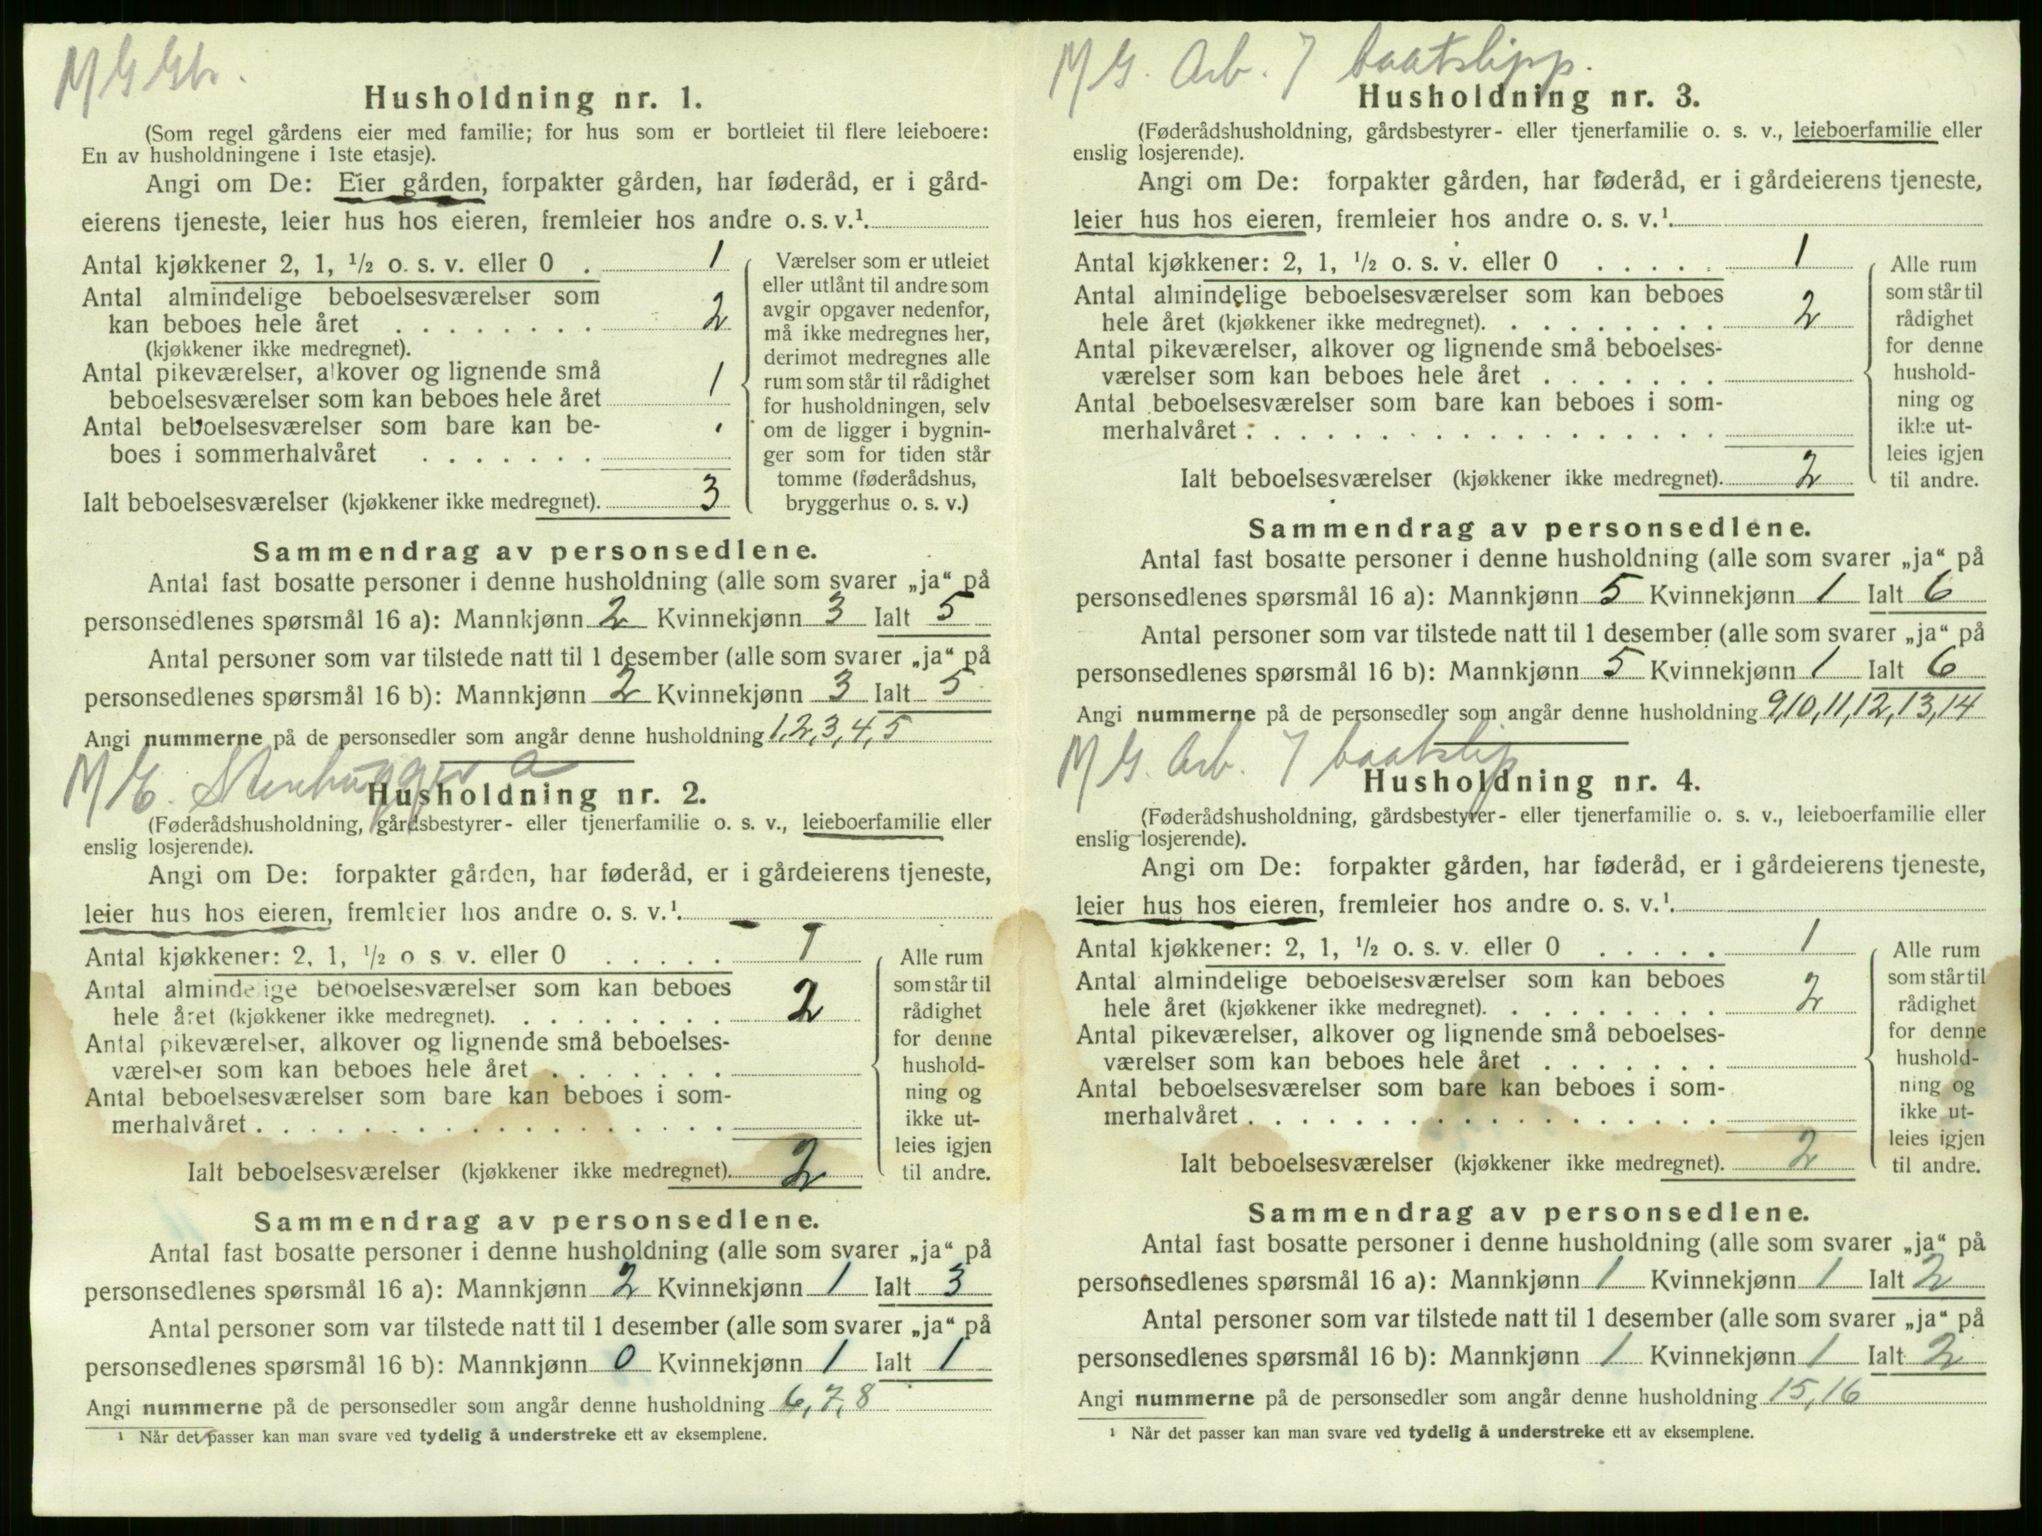 M G Gbr.
Husholdning nr. 1.
(Som regel gårdens eier med familie; for hus som er bortleiet til flere leieboere:
En av husholdningene i 1ste etasje).
Angi om De: Eier gården, forpakter gården, har føderåd, er i gård-
eierens tjeneste, leier hus hos eieren, fremleier hos andre o. s. v.¹.
Antal kjøkkener 2, 1, ½ o. s. v. eller 0 . 1
Antal almindelige beboelsesværelser som
kan beboes hele året . . . . . . . . 2
(kjøkkener ikke medregnet).
Antal pikeværelser, alkover og lignende små
beboelsesværelser som kan beboes hele året 1
Antal beboelsesværelser som bare kan be-
boes i sommerhalvåret . . . . . . .
Ialt beboelsesværelser (kjøkkener ikke medregnet). 3
Værelser som er utleiet
eller utlånt til andre som
avgir opgaver nedenfor,
må ikke medregnes her,
derimot medregnes alle
rum som står til rådighet
for husholdningen, selv
om de ligger i bygnin-
ger som for tiden står
tomme (føderådshus,
bryggerhus o. s. v.)
Sammendrag av personsedlene.
Antal fast bosatte personer i denne husholdning (alle som svarer „ja“ på
personsedlenes spørsmål 16 a): Mannkjønn 2 Kvinnekjønn 3 Ialt 5
Antal personer som var tilstede natt til 1 desember (alle som svarer „ja“ på
personsedlenes spørsmål 16 b): Mannkjønn 2 Kvinnekjønn 3 Ialt 5
Angi nummerne på de personsedler som angår denne husholdning 1,2,3,4,5
M G. Stenhugger a
Husholdning nr. 2.
(Føderådshusholdning, gårdsbestyrer- eller tjenerfamilie o. s. v., leieboerfamilie eller
enslig losjerende).
Angi om De: forpakter gården, har føderåd, er i gårdeierens tjeneste,
leier hus hos eieren, fremleier hos andre o. s. v.¹.
Antal kjøkkener: 2, 1, ½ o. s. v. eller 0 . . . . . 1
Antal almindelige beboelsesværelser som kan beboes
hele året (kjøkkener ikke medregnet). . . . . . . . . 2
Antal pikeværelser, alkover og lignende små beboelses-
værelser som kan beboes hele året . . . . . . .
Antal beboelsesværelser som bare kan beboes i som-
merhalvåret . . . . . . . . . . . . . . . . . .
Ialt beboelsesværelser (kjøkkener ikke medregnet). 2
Alle rum
som står til
rådighet
for denne
hushold-
ning og
ikke ut-
leies igjen
til andre.
Sammendrag av personsedlene.
Antal fast bosatte personer i denne husholdning (alle som svarer „ja“ på
personsedlenes spørsmål 16 a): Mannkjønn 2 Kvinnekjønn 1 Ialt 3
Antal personer som var tilstede natt til 1 desember (alle som svarer „ja“ på
personsedlenes spørsmål 16 b): Mannkjønn 0 Kvinnekjønn 1 Ialt 1
Angi nummerne på de personsedler som angår denne husholdning 6,7,8
¹ Når det passer kan man svare ved tydelig å understreke ett av eksemplene.
M G. Arb. 7 baatslipp.
Husholdning nr. 3.
(Føderådshusholdning, gårdsbestyrer- eller tjenerfamilie o. s. v., leieboerfamilie eller
enslig losjerende).
Angi om De: forpakter gården, har føderåd, er i gårdeierens tjeneste,
leier hus hos eieren, fremleier hos andre o. s. v.¹.
Antal kjøkkener: 2, 1, ½ o. s. v. eller 0 . . . . . 1
Antal almindelige beboelsesværelser som kan beboes
hele året (kjøkkener ikke medregnet). . . . . . . . . 2
Antal pikeværelser, alkover og lignende små beboelses-
værelser som kan beboes hele året . . . . . . .
Antal beboelsesværelser som bare kan beboes i som-
merhalvåret . . . . . . . . . . . . . . . . . .
Ialt beboelsesværelser (kjøkkener ikke medregnet). 2
Alle rum
som står til
rådighet
for denne
hushold-
ning og
ikke ut-
leies igjen
til andre.
Sammendrag av personsedlene.
Antal fast bosatte personer i denne husholdning (alle som svarer „ja“ på
personsedlenes spørsmål 16 a): Mannkjønn 5 Kvinnekjønn 1 Ialt 6
Antal personer som var tilstede natt til 1 desember (alle som svarer „ja“ på
personsedlenes spørsmål 16 b): Mannkjønn 5 Kvinnekjønn 1 Ialt 6
Angi nummerne på de personsedler som angår denne husholdning 9,10,11,12,13,14
M G. Arb. 7 baatslip
Husholdning nr. 4.
(Føderådshusholdning, gårdsbestyrer- eller tjenerfamilie o. s. v., leieboerfamilie eller
enslig losjerende).
Angi om De: forpakter gården, har føderåd, er i gårdeierens tjeneste,
leier hus hos eieren, fremleier hos andre o. s. v.¹.
Antal kjøkkener: 2, 1, ½ o. s. v. eller 0 . . . . . 1
Antal almindelige beboelsesværelser som kan beboes
hele året (kjøkkener ikke medregnet). . . . . . . . . 2
Antal pikeværelser, alkover og lignende små beboelses-
værelser som kan beboes hele året . . . . . . .
Antal beboelsesværelser som bare kan beboes i som-
merhalvåret . . . . . . . . . . . . . . . . . .
Ialt beboelsesværelser (kjøkkener ikke medregnet). 2
Alle rum
som står til
rådighet
for denne
hushold-
ning og
ikke ut-
leies igjen
til andre.
Sammendrag av personsedlene.
Antal fast bosatte personer i denne husholdning (alle som svarer „ja“ på
personsedlenes spørsmål 16 a): Mannkjønn 1 Kvinnekjønn 1 Ialt 2
Antal personer som var tilstede natt til 1 desember (alle som svarer „ja“ på
personsedlenes spørsmål 16 b): Mannkjønn 1 Kvinnekjønn 1 Ialt 2
Angi nummerne på de personsedler som angår denne husholdning 15,16
¹ Når det passer kan man svare ved tydelig å understreke ett av eksemplene.